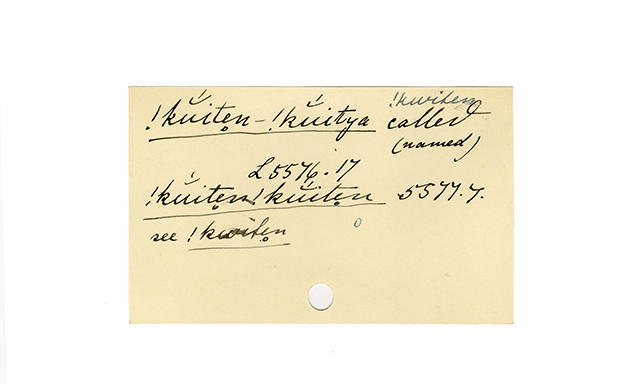 !kwiten
!kŭitẹn - !kŭitya called
(named)
L5576.17
!kŭitẹn!kŭitẹn 5577.7.
see !kwitẹn
0